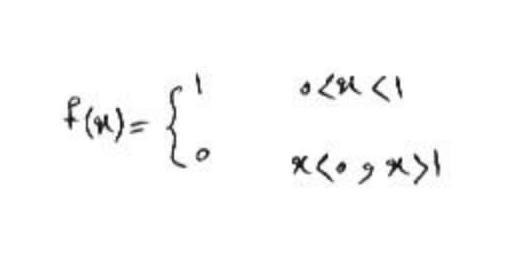 f(x)= { 1 0<x<1
0 x<0 و x>1